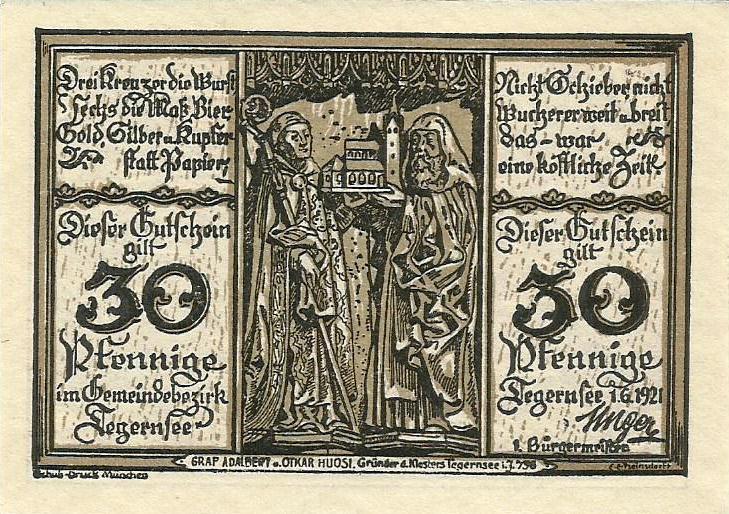 Drei Kreuzer die Wurst
sechs die Maß Bier
Gold, Silber u. Kupfer
statt Papier;
Dieser Gutschein
gilt
30
Pfennige
im Gemeindebezirk
Tegernsee
Nicht Schieber, nicht
Wucherer weit u. breit
das - war
eine köstliche Zeit.
Dieser Gutschein
gilt
30
Pfennige
Tegernsee, 1.6.1921
Unger
1. Bürgermeister
GRAF ADALBERT u. OTKAR HUOSI, Gründer d. Klosters Tegernsee i. J. 756
Druck München